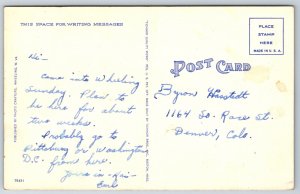 THIS SPACE FOR WRITING MESSAGES
POST CARD
PLACE
STAMP
HERE
MADE IN U.S.A.
Hi-
Came into Wheeling
Sunday. Plan to
be here for about
two weeks.
Probably go to
Pittsburg or Washington
D.C. from here.
Yours in
Byron
1164 So. Race St.
Denver, Colo.